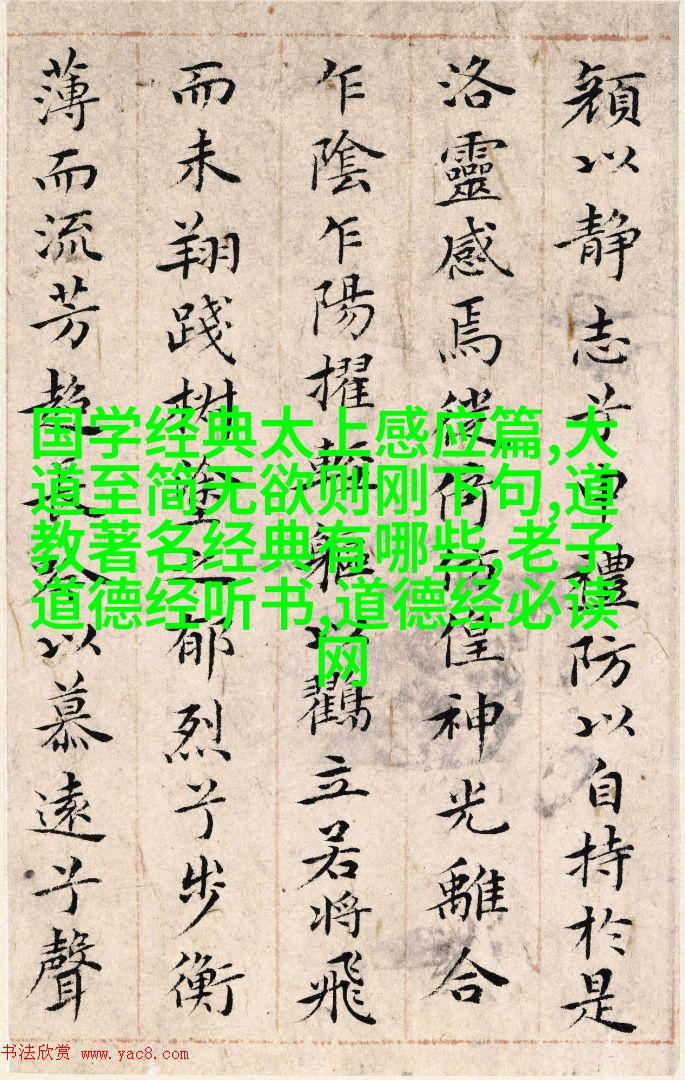 顏以静志兮申禮防以自持於是
洛靈感焉徙倚彷徨神光離合
乍陰乍陽擢輕軀以鶴立若將飛
而未翔踐椒塗之郁烈兮步衡
薄而流芳超長吟以慕遠兮聲
国学经典太上感应篇,大
道至简无欲则刚下句,道
教著名经典有哪些,老子
道德经听书,道德经必读
网
书法欣赏 www.yac8.com